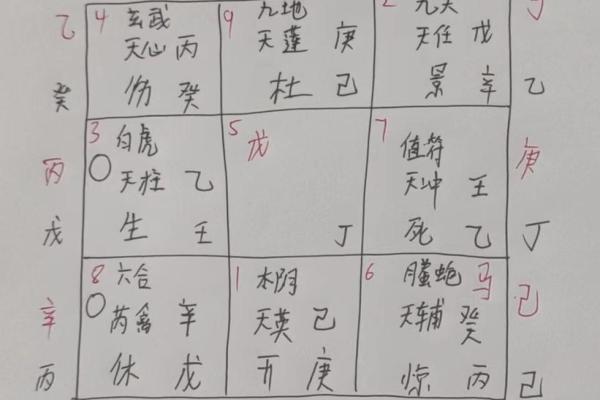 乙 4 玄武 9 九地 2 九天 丁
天心 丙 天蓬 庚 天任 戊
癸 伤 癸 杜 己 景 辛 乙
3 白虎 5 戊 7 值符
丙 〇 天柱 乙 天冲 壬 庚
戊 生 壬 丁 死 乙 丁
8 六合 1 太阴 6 螣蛇 马
辛 〇 芮禽 辛 天英 己 天辅 癸 己
丙 休 戊 开 庚 惊 丙 己